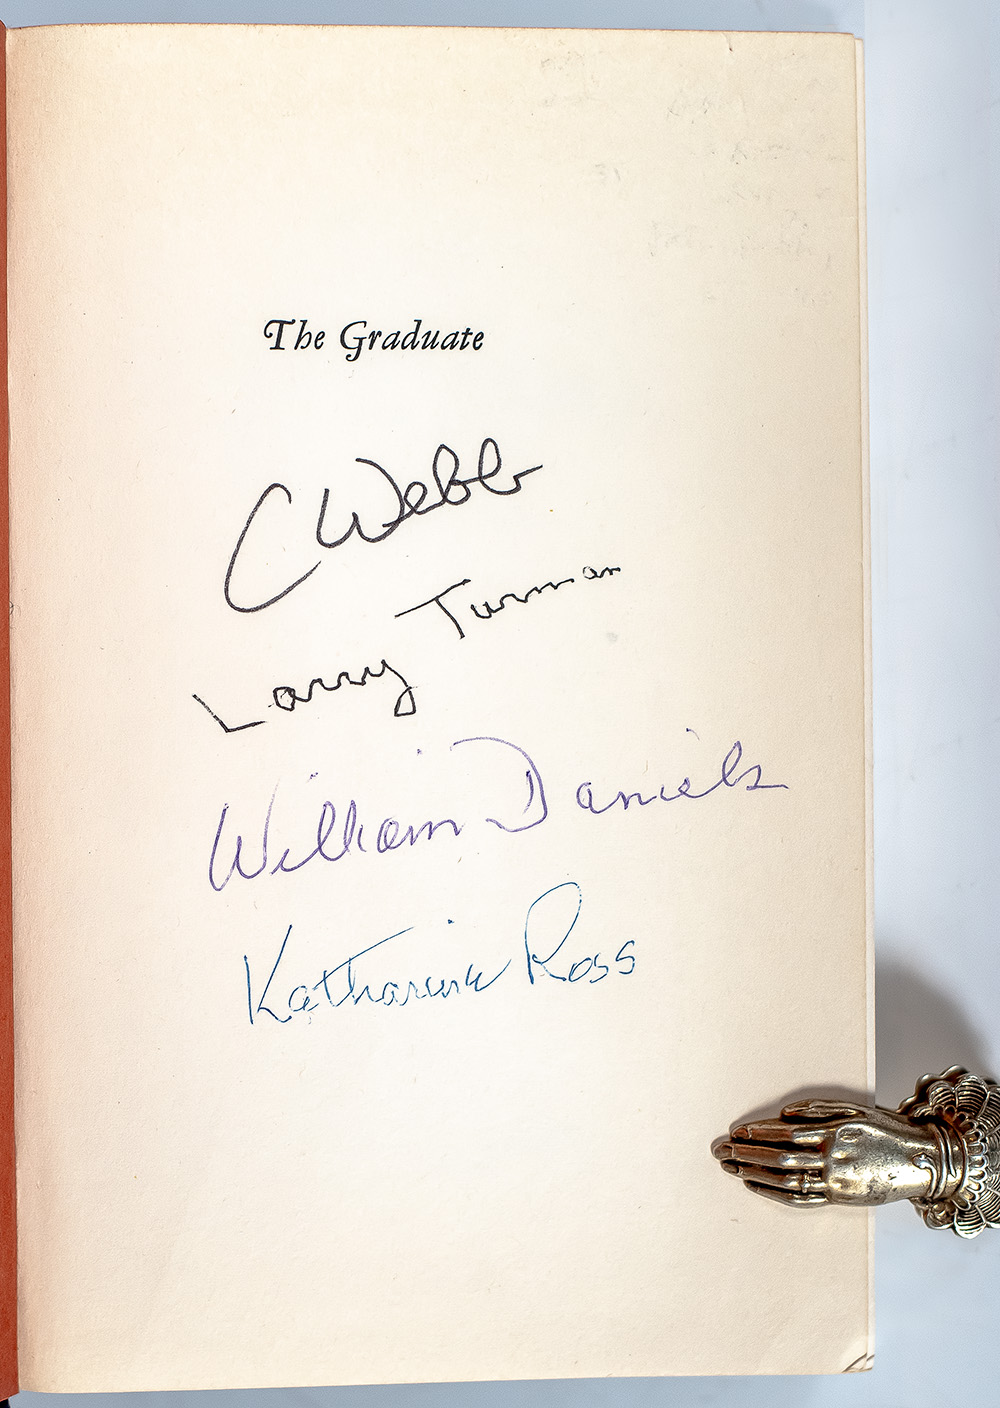 The Graduate
CWebb
Larry Turman
William Daniels
Katharine Ross